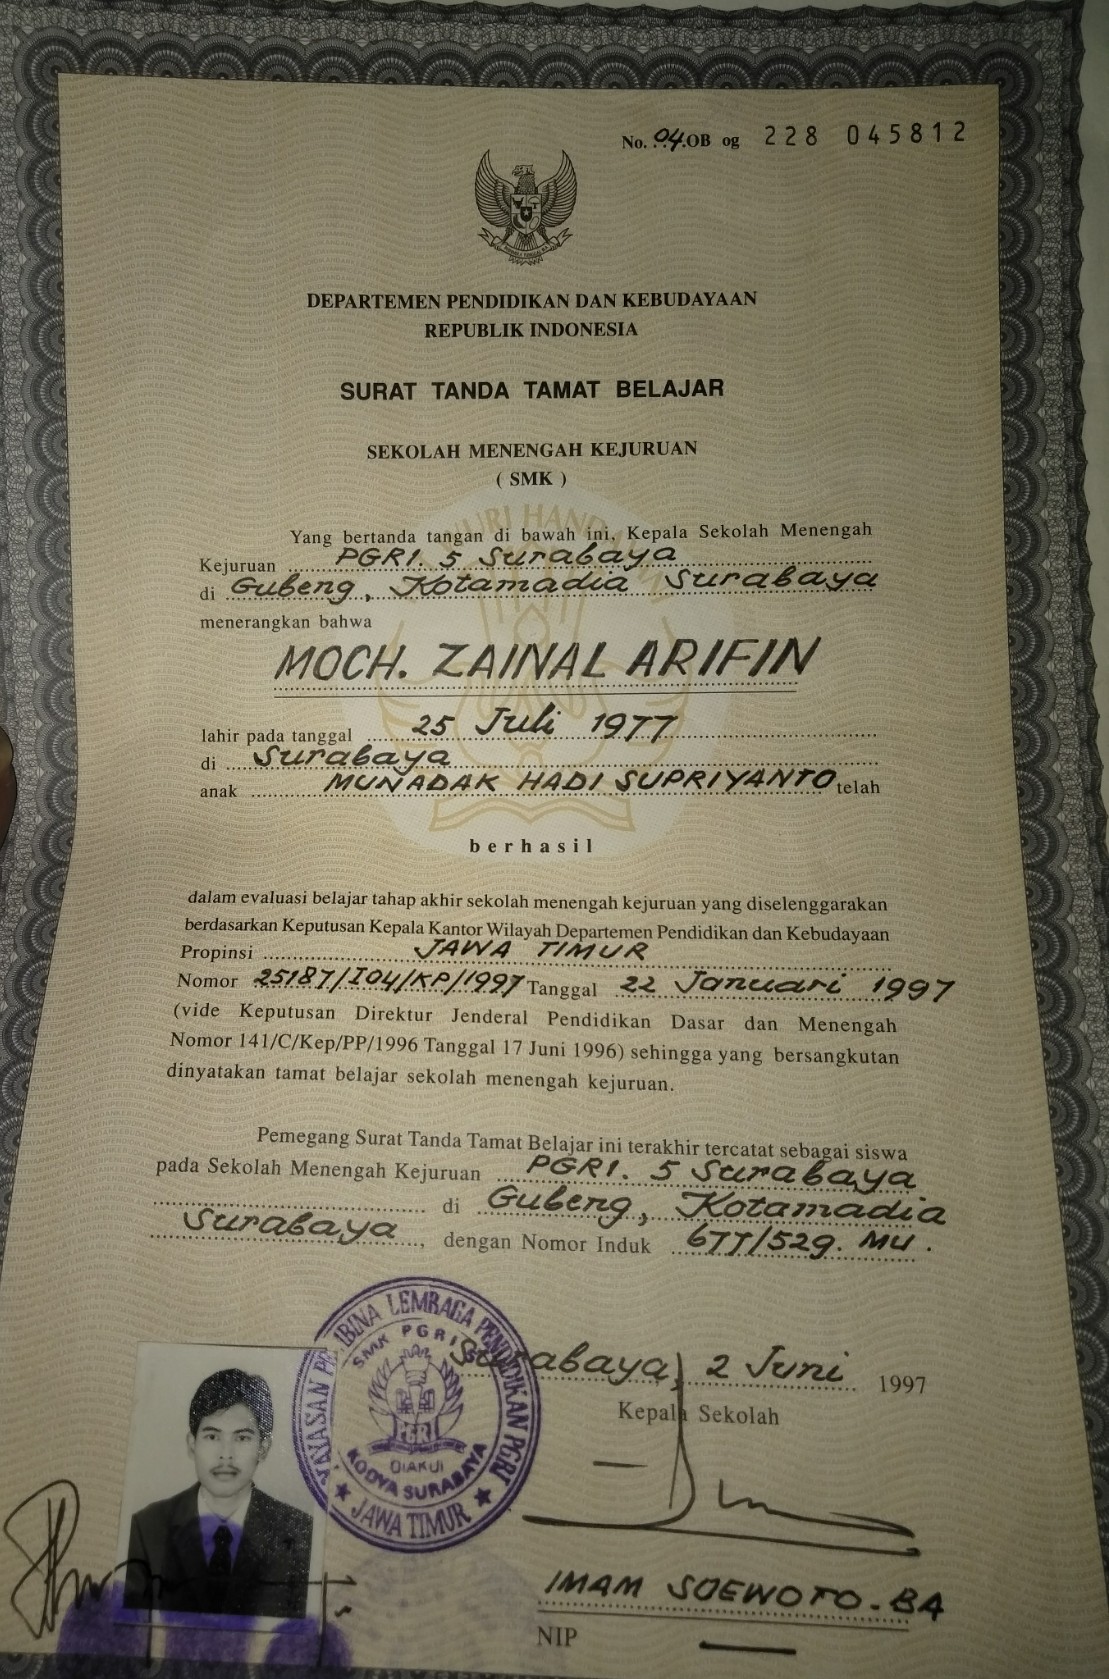 No. 04 OB og 228 045812
DEPARTEMEN PENDIDIKAN DAN KEBUDAYAAN
REPUBLIK INDONESIA
SURAT TANDA TAMAT BELAJAR
SEKOLAH MENENGAH KEJURUAN
( SMK )
Yang bertanda tangan di bawah ini, Kepala Sekolah Menengah
Kejuruan PGRI. 5 Surabaya
di Gubeng, Kotamadia Surabaya
menerangkan bahwa
MOCH. ZAINAL ARIFIN
lahir pada tanggal 25 Juli 1977
di Surabaya
anak MUNADAK HADI SUPRIYANTO telah
berhasil
dalam evaluasi belajar tahap akhir sekolah menengah kejuruan yang diselenggarakan
berdasarkan Keputusan Kepala Kantor Wilayah Departemen Pendidikan dan Kebudayaan
Propinsi JAWA TIMUR
Nomor 25187/I04/KP/1997 Tanggal 22 Januari 1997
(vide Keputusan Direktur Jenderal Pendidikan Dasar dan Menengah
Nomor 141/C/Kep/PP/1996 Tanggal 17 Juni 1996) sehingga yang bersangkutan
dinyatakan tamat belajar sekolah menengah kejuruan.
Pemegang Surat Tanda Tamat Belajar ini terakhir tercatat sebagai siswa
pada Sekolah Menengah Kejuruan PGRI. 5 Surabaya
di Gubeng, Kotamadia
Surabaya, dengan Nomor Induk 677/529. MU.
YAYASAN PEMBINA LEMBAGA PENDIDIKAN PGRI
SMK PGRI 5
PGRI
DIAKUI
KODYA SURABAYA
JAWA TIMUR
Surabaya, 2 Juni 1997
Kepala Sekolah
IMAM SOEWOTO. BA
NIP —